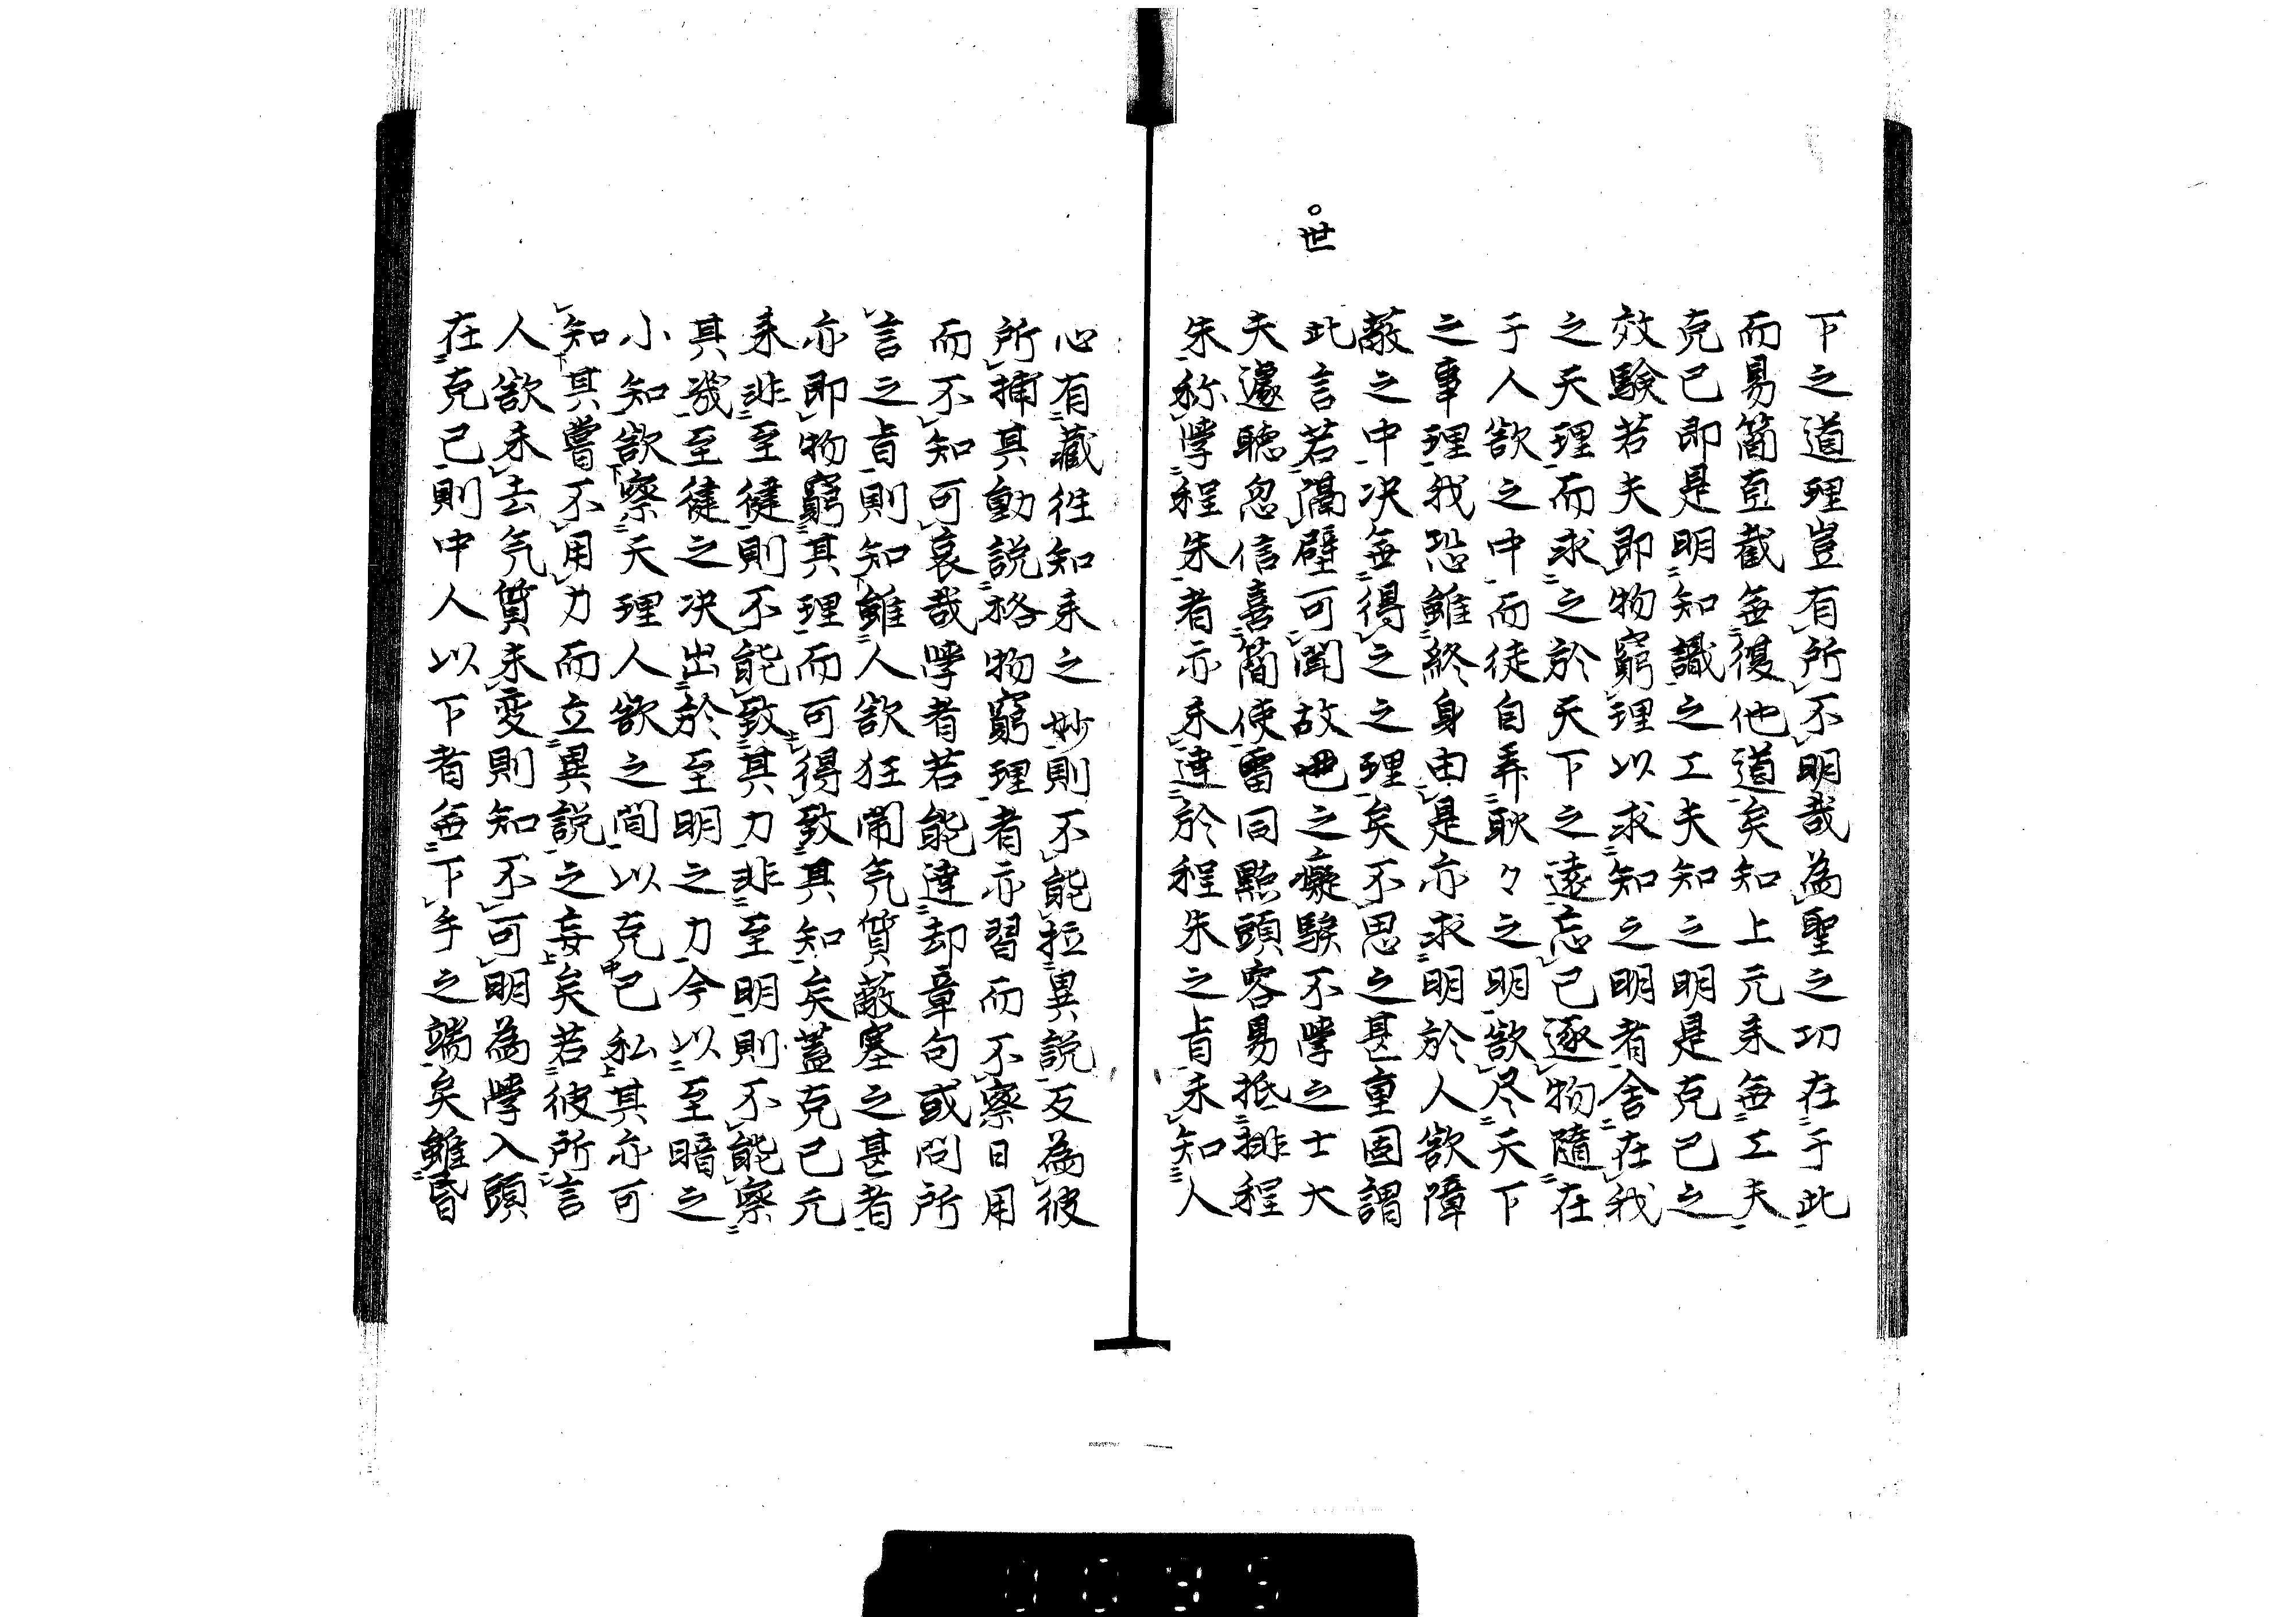 下之道理豈有所不明哉為聖之功在于此
而易簡直截每復他道矣知上元来每工夫
克己即是明知識之工夫知之明是克己之
效験若夫即物窮理以求知之明者舍在我
之天理而求之於天下之遠忘己逐物随在
于人欲之中而徒自弄耿々之明欲尽天下
之事理我恐雖終身由是亦求明於人欲障
蔽之中决每得之之理矣不思之甚重固謂
此言若隔壁可聞故也之癡騃不學之士大
世
夫遽聴忽信喜簡使雷同點頭容易抵排程
朱称學程朱者亦未達於程朱之旨未知人
心有藏往知来之妙則不能拉異説反為彼
所捕其動説格物窮理者亦習而不察日用
而不知可哀哉學者若能達却章句或問所
言之旨則知雖人欲狂閙気質蔽塞之甚者
亦即物窮其理而可得致其知矣蓋克己元
来非至健則不能致其力非至明則不能察
其幾至健之决出於至明之力今以至暗之
小知欲察天理人欲之間以克己私其亦可
知其嘗不用力而立異説之妄矣若彼所言
人欲未去気質未変則知不可明為學入頭
在克己則中人以下者每下手之端矣雖昏